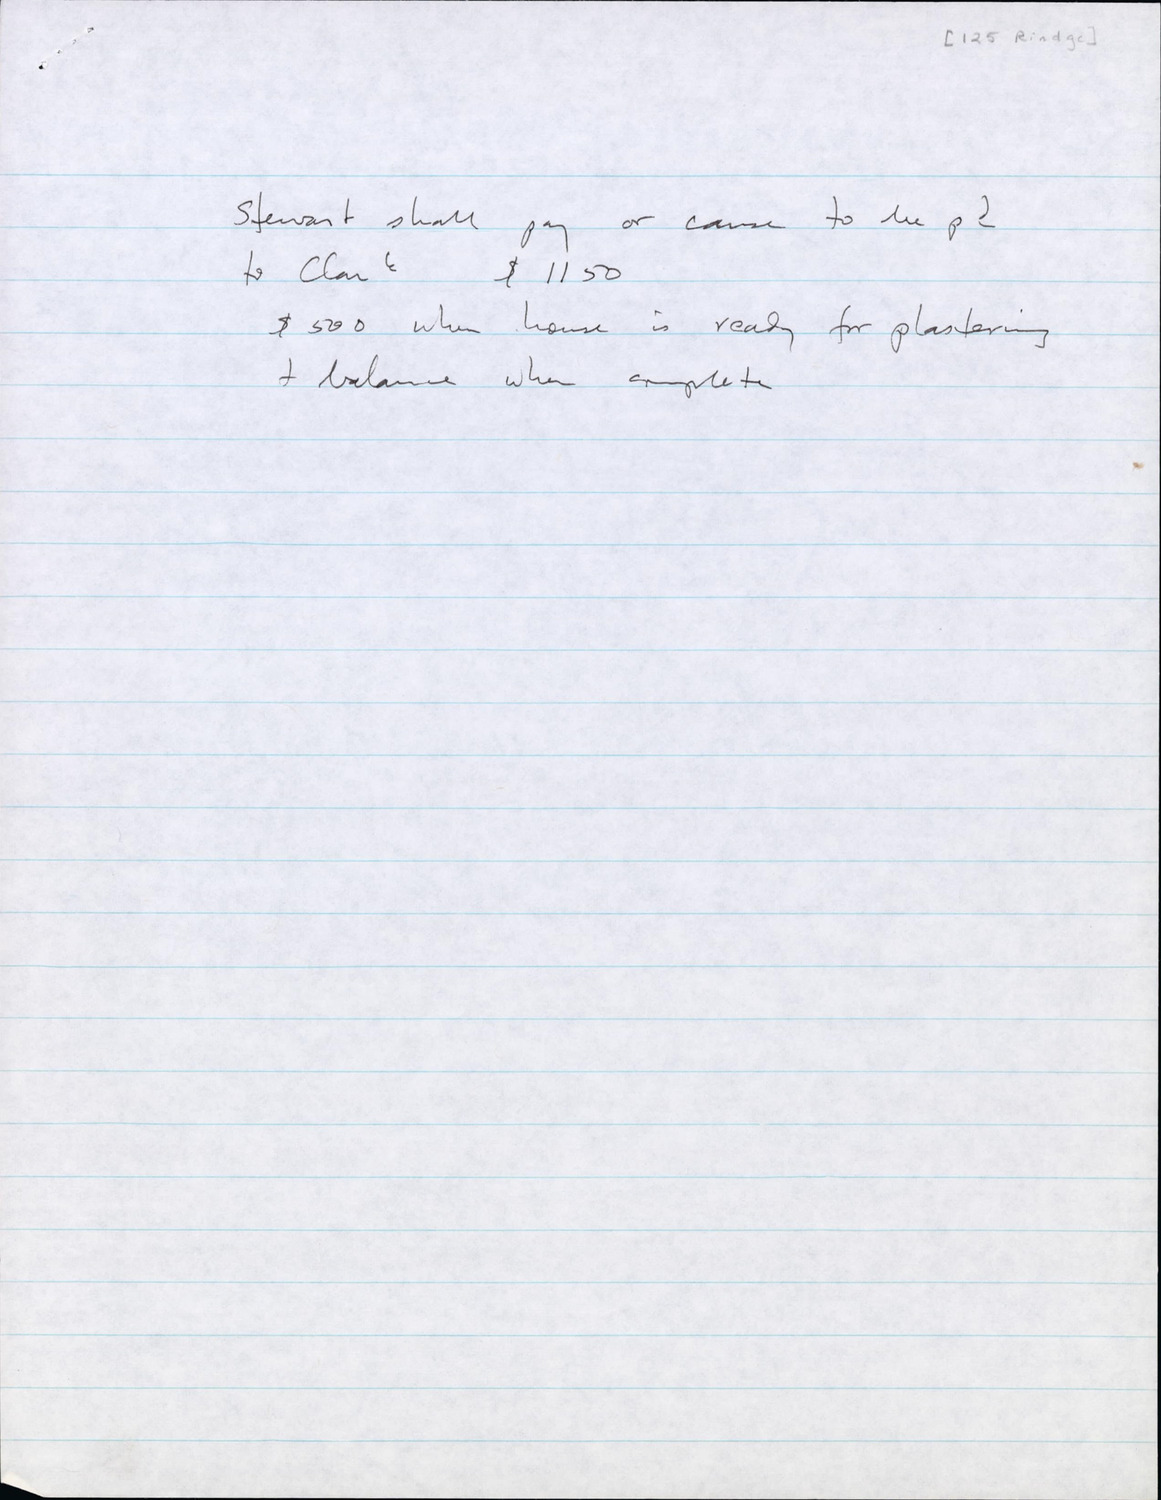 [125 Rindge]
Stewart shall pay or cause to be pd
to Clark $1150
$500 when house is ready for plastering
+ balance when complete